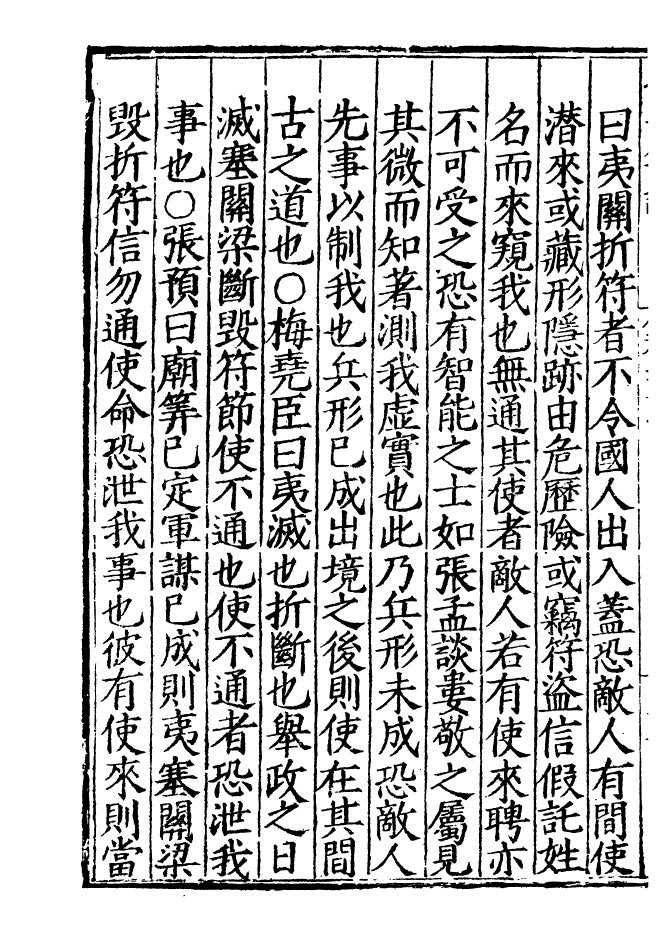 曰夷關折符者不令國人出入蓋恐敵人有間使
潜來或藏形隱跡由危歷險或竊符盜信假託姓
名而來窺我也無通其使者敵人若有使來聘亦
不可受之恐有智能之士如張孟談婁敬之屬見
其微而知著測我虛實也此乃兵形未成恐敵人
先事以制我也兵形已成出境之後則使在其間
古之道也○梅堯臣曰夷滅也折斷也舉政之日
滅塞關梁斷毀符節使不通也使不通者恐泄我
事也○張預曰廟筭已定軍謀已成則夷塞關梁
毀折符信勿通使命恐泄我事也彼有使來則當